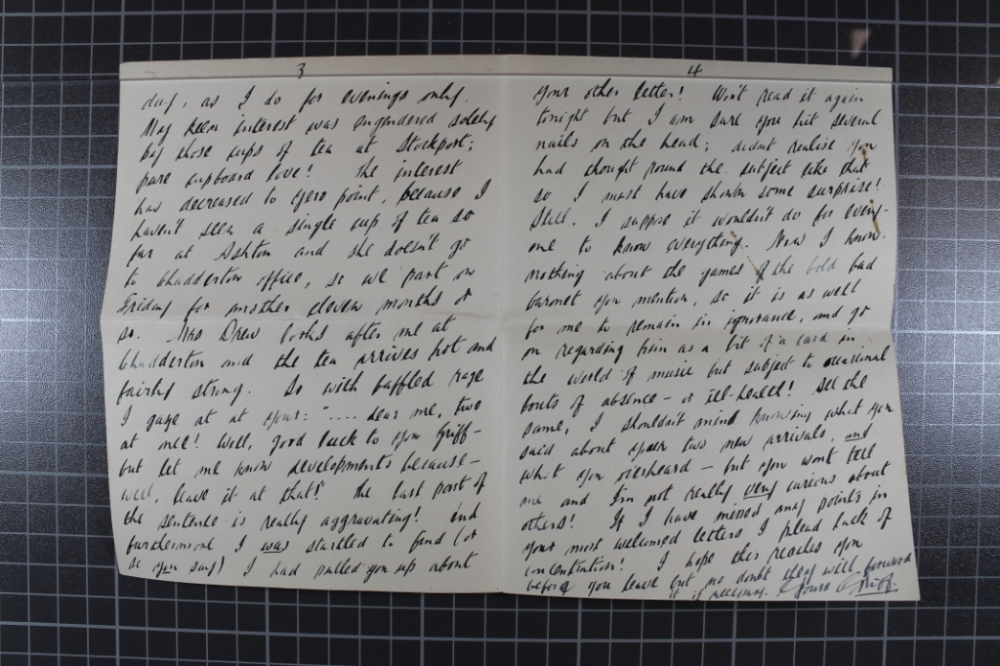 3
day, as I do for evenings only.
May keen interest was engendered solely
by those cups of tea at Stockport;
pure cupboard love! The interest
has decreased to zero point, because I
haven't seen a single cup of tea so
far at Ashton and she doesn't go
to Chadderton office, so we part on
Friday for another eleven months or
so. Mrs Drew looks after me at
Chadderton and the tea arrives hot and
fairly strong. So with baffled rage
I gaze at at your: ".... dear me, two
at once! Well, good luck to you Griff-
but let me know developments because-
well, leave it at that!" The last part of
the sentence is really aggravating! And
furthermore I was startled to find (or
so you say) I had pulled you up about
4
your other letter! Won't read it again
tonight but I am sure you hit several
nails on the head; didn't realise you
had thought round the subject like that
so I must have shown some surprise!
Still, I suppose it wouldn't do for every-
one to know everything. Now I know
nothing about the games of the bold bad
baronet you mention, so it is as well
for me to remain in ignorance, and go
on regarding him as a bit of a card in
the world of music but subject to occasional
bouts of absence - or ill-health! All the
same, I shouldn't mind knowing what you
said about your two new arrivals, and
what you overheard - but you won't tell
me and I'm not really very curious about
others! If I have missed any points in
your most welcomed letters I plead lack of
concentration! I hope this reaches you
before you leave but no doubt they will forward
it if necessary. Yours Griff.